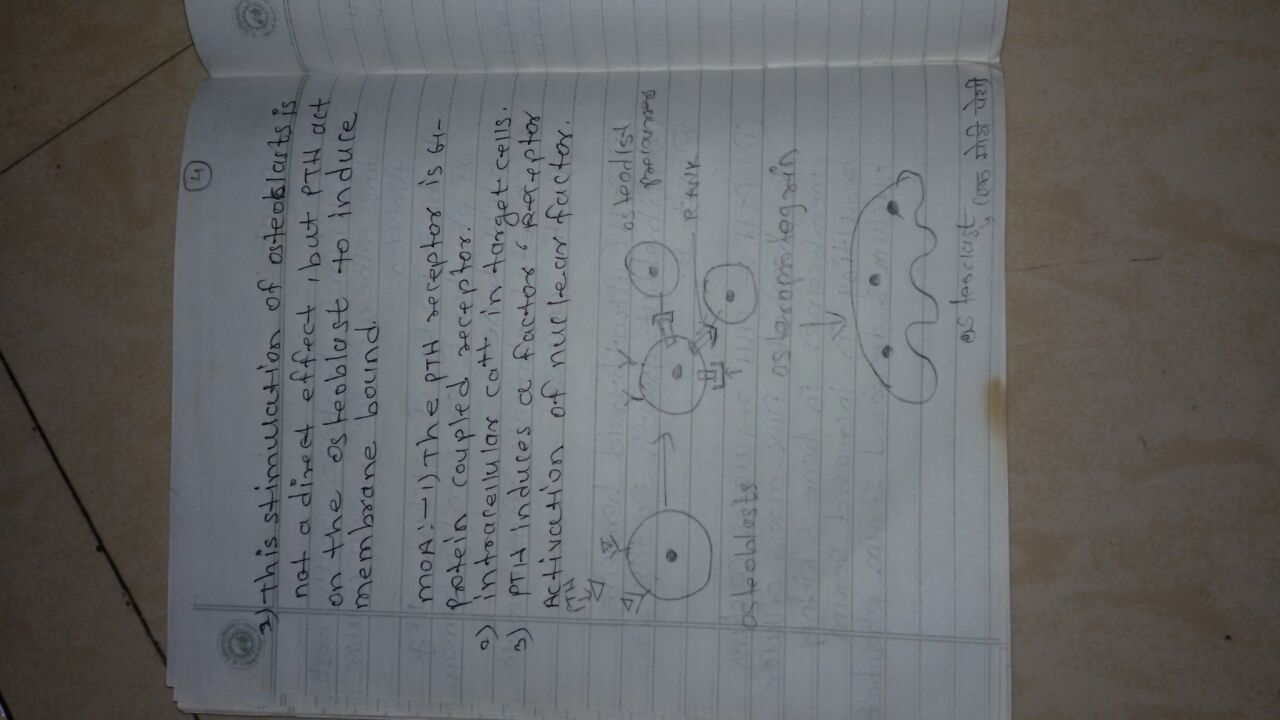 4
2) This stimulation of osteoblasts is
not a direct effect, but PTH act
on the osteoblast to induce
membrane bound.
MOA:-1) The PTH receptor is G-
protein coupled receptor.
2) intracellular ca++ in target cells.
3) PTH induces a factor 'Receptor
Activation of nuclear factor.
PTH
osteoclast
precursor
RANK
osteoblasts
osteoclast